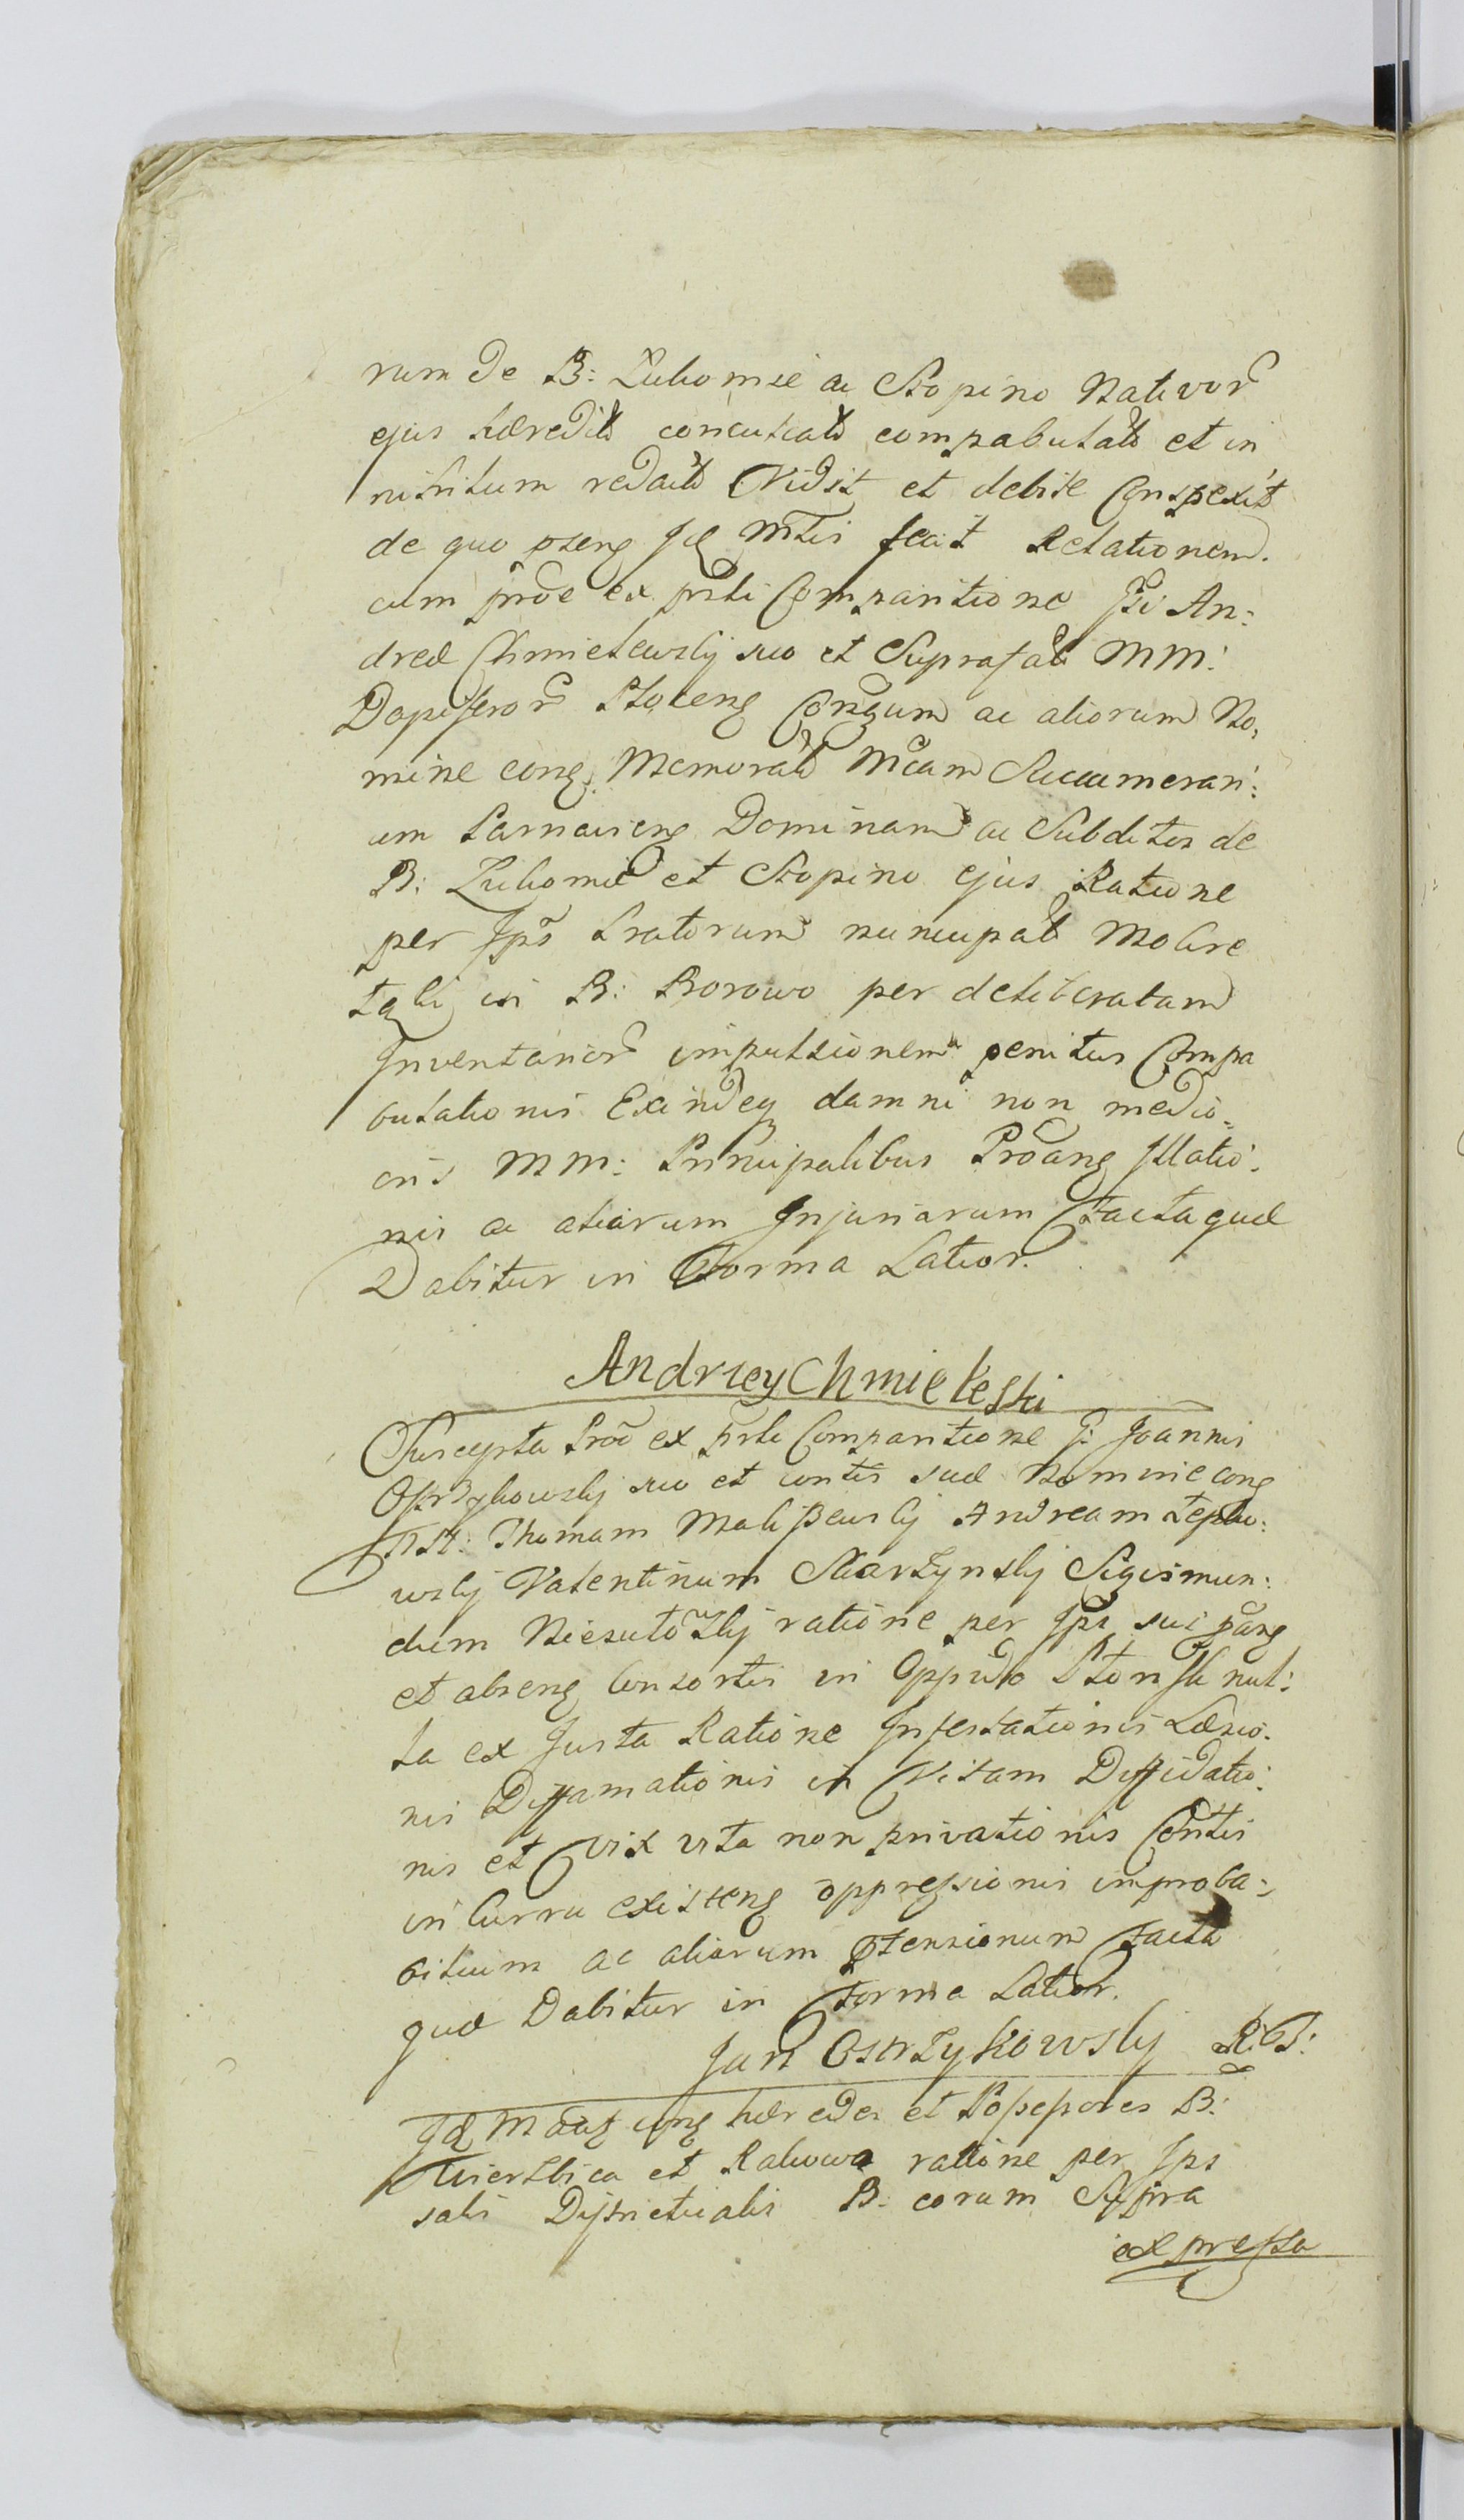 rum de B: Luhomie ac Stopino Nativor
ejus hæredit concuhcatt compabulatt et in
nihilum redactt Vidit et debite Conspexit
de quo pseng Jd Mtis fecit Relationem.
cum proe ex prsti Comparitione Gsi An:
dreæ Chmielewsky suo et Suprafatt MM:
Dapiferor Ploceng Congum ac aliorum No,
mine cong. Memoratt Mcam Succumerari:
am Parnavieng Dominam ac Subditos de
B: Luhomie et Stopino ejus Ratione
per Jps Pratorum nuncupatt Mokre
Łąki in B: Borowo per deliberatam
Inventarior impulsionem penitus Compa
bulationis Exindeq damni non medio,
cris MM: Principalibus Proang Illatio,
nis ac aliarum Injuriarum facta quæ
Dabitur in Forma Latior.
Andrzey Chmieleski
Suscepta Proo ex prsti Comparitione G: Joannis
Ostrzykowsky suo et contis suæ Nomine cong
NN: Thomam Maliszewsky Andream Lepko:
wsky Valentinum Skarzynsky Sigismun:
dum Niesułowsky ratione per Jps sui pang
et abseng Consortis in Oppido Płonsk nul:
la ex Justa Ratione Infestationis Læsio,
nis Diffamationis in Vitam Diffidatio:
nis et Vix vita non privationis Contis
in Curru existeng oppressionis improba:
bitium ac aliarum pstensionum facta
quæ Dabitur in Forma Latior.
Jan Ostrzykowsky R: B:
Jd Maug cong hæredes et Possessores B:
Wierzbica et Rakowa ratione per Jps
sali Districtualis B: eorum Supra
expressa